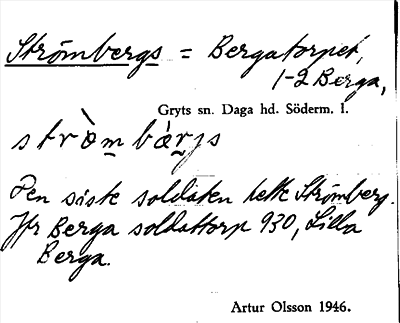 Strömbergs = Bergatorpet,
1-2 Berga,
Gryts sn. Daga hd. Söderm. l.
strò̀m bàrjs
Den siste soldaten hette Strömberg.
Jfr Berga soldattorp 930, Lilla
Berga.
Artur Olsson 1946.